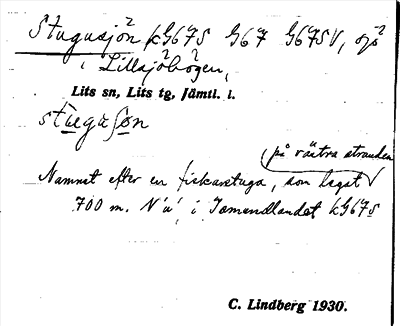 Stugusjön kG67S G67 G67SV, sjö
i Lillsjöhögen,
Lits sn, Lits tg, Jämtl. l.
stugasǫn
på västra stranden
Namnet efter en fiskarstuga, som legat
700 m. N'u' i Tamendlandet kG67S
C. Lindberg 1930.